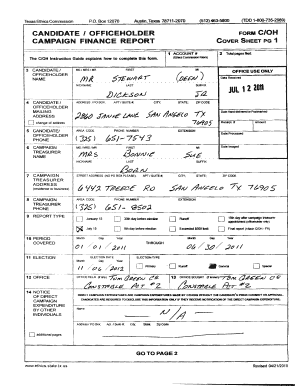 Texas Ethics Commission P.O. Box 12070 Austin, Texas 78711-2070 (512) 463-5800 (TDD 1-800-735-2989)
CANDIDATE / OFFICEHOLDER CAMPAIGN FINANCE REPORT
FORM C/OH
COVER SHEET PG 1
The C/OH Instruction Guide explains how to complete this form.
1 ACCOUNT #
2 Total pages filed:
3 CANDIDATE / OFFICEHOLDER NAME
MS / MRS / MR FIRST MI
MR STEWART (DEEN)
NICKNAME LAST SUFFIX
DICKSON JR
OFFICE USE ONLY
Date Received
JUL 12 2011
4 CANDIDATE / OFFICEHOLDER MAILING ADDRESS
change of address
ADDRESS / PO BOX; APT / SUITE #; CITY; STATE; ZIP CODE
2860 JANIE LANE SAN ANGELO TX
76905
5 CANDIDATE / OFFICEHOLDER PHONE
AREA CODE PHONE NUMBER EXTENSION
(325) 651-7543
Date Hand-delivered or Postmarked
Receipt # Amount
Date Processed
Date Imaged
6 CAMPAIGN TREASURER NAME
MS / MRS / MR FIRST MI
MRS BONNIE SUE
NICKNAME LAST SUFFIX
BORN
7 CAMPAIGN TREASURER ADDRESS
(residence or business)
STREET ADDRESS (NO PO BOX PLEASE); APT / SUITE #; CITY; STATE; ZIP CODE
SAN ANGELO TX 76905
8 CAMPAIGN TREASURER PHONE
AREA CODE PHONE NUMBER EXTENSION
(325) 651-8502
9 REPORT TYPE
January 15
30th day before election
Runoff
15th day after campaign treasurer appointment (officeholder only)
July 15
8th day before election
Exceeded $500 limit
Final report (Attach C/OH - FR)
10 PERIOD COVERED
Month Day Year THROUGH Month Day Year
01 / 01 / 2011 06 / 30 / 2011
11 ELECTION
ELECTION DATE
Month Day Year
11 / 06 / 2012
ELECTION TYPE
Primary Runoff General Special
12 OFFICE
OFFICE HELD (if any) TOM GREEN CO
CONSTABLE PCT #2
13 OFFICE SOUGHT (if known) TOM GREEN CO
CONSTABLE PCT #2
14 NOTICE OF DIRECT CAMPAIGN EXPENDITURE BY OTHER INDIVIDUALS
Name
N/A
additional pages
GO TO PAGE 2
www.ethics.state.tx.us Revised 04/21/2010